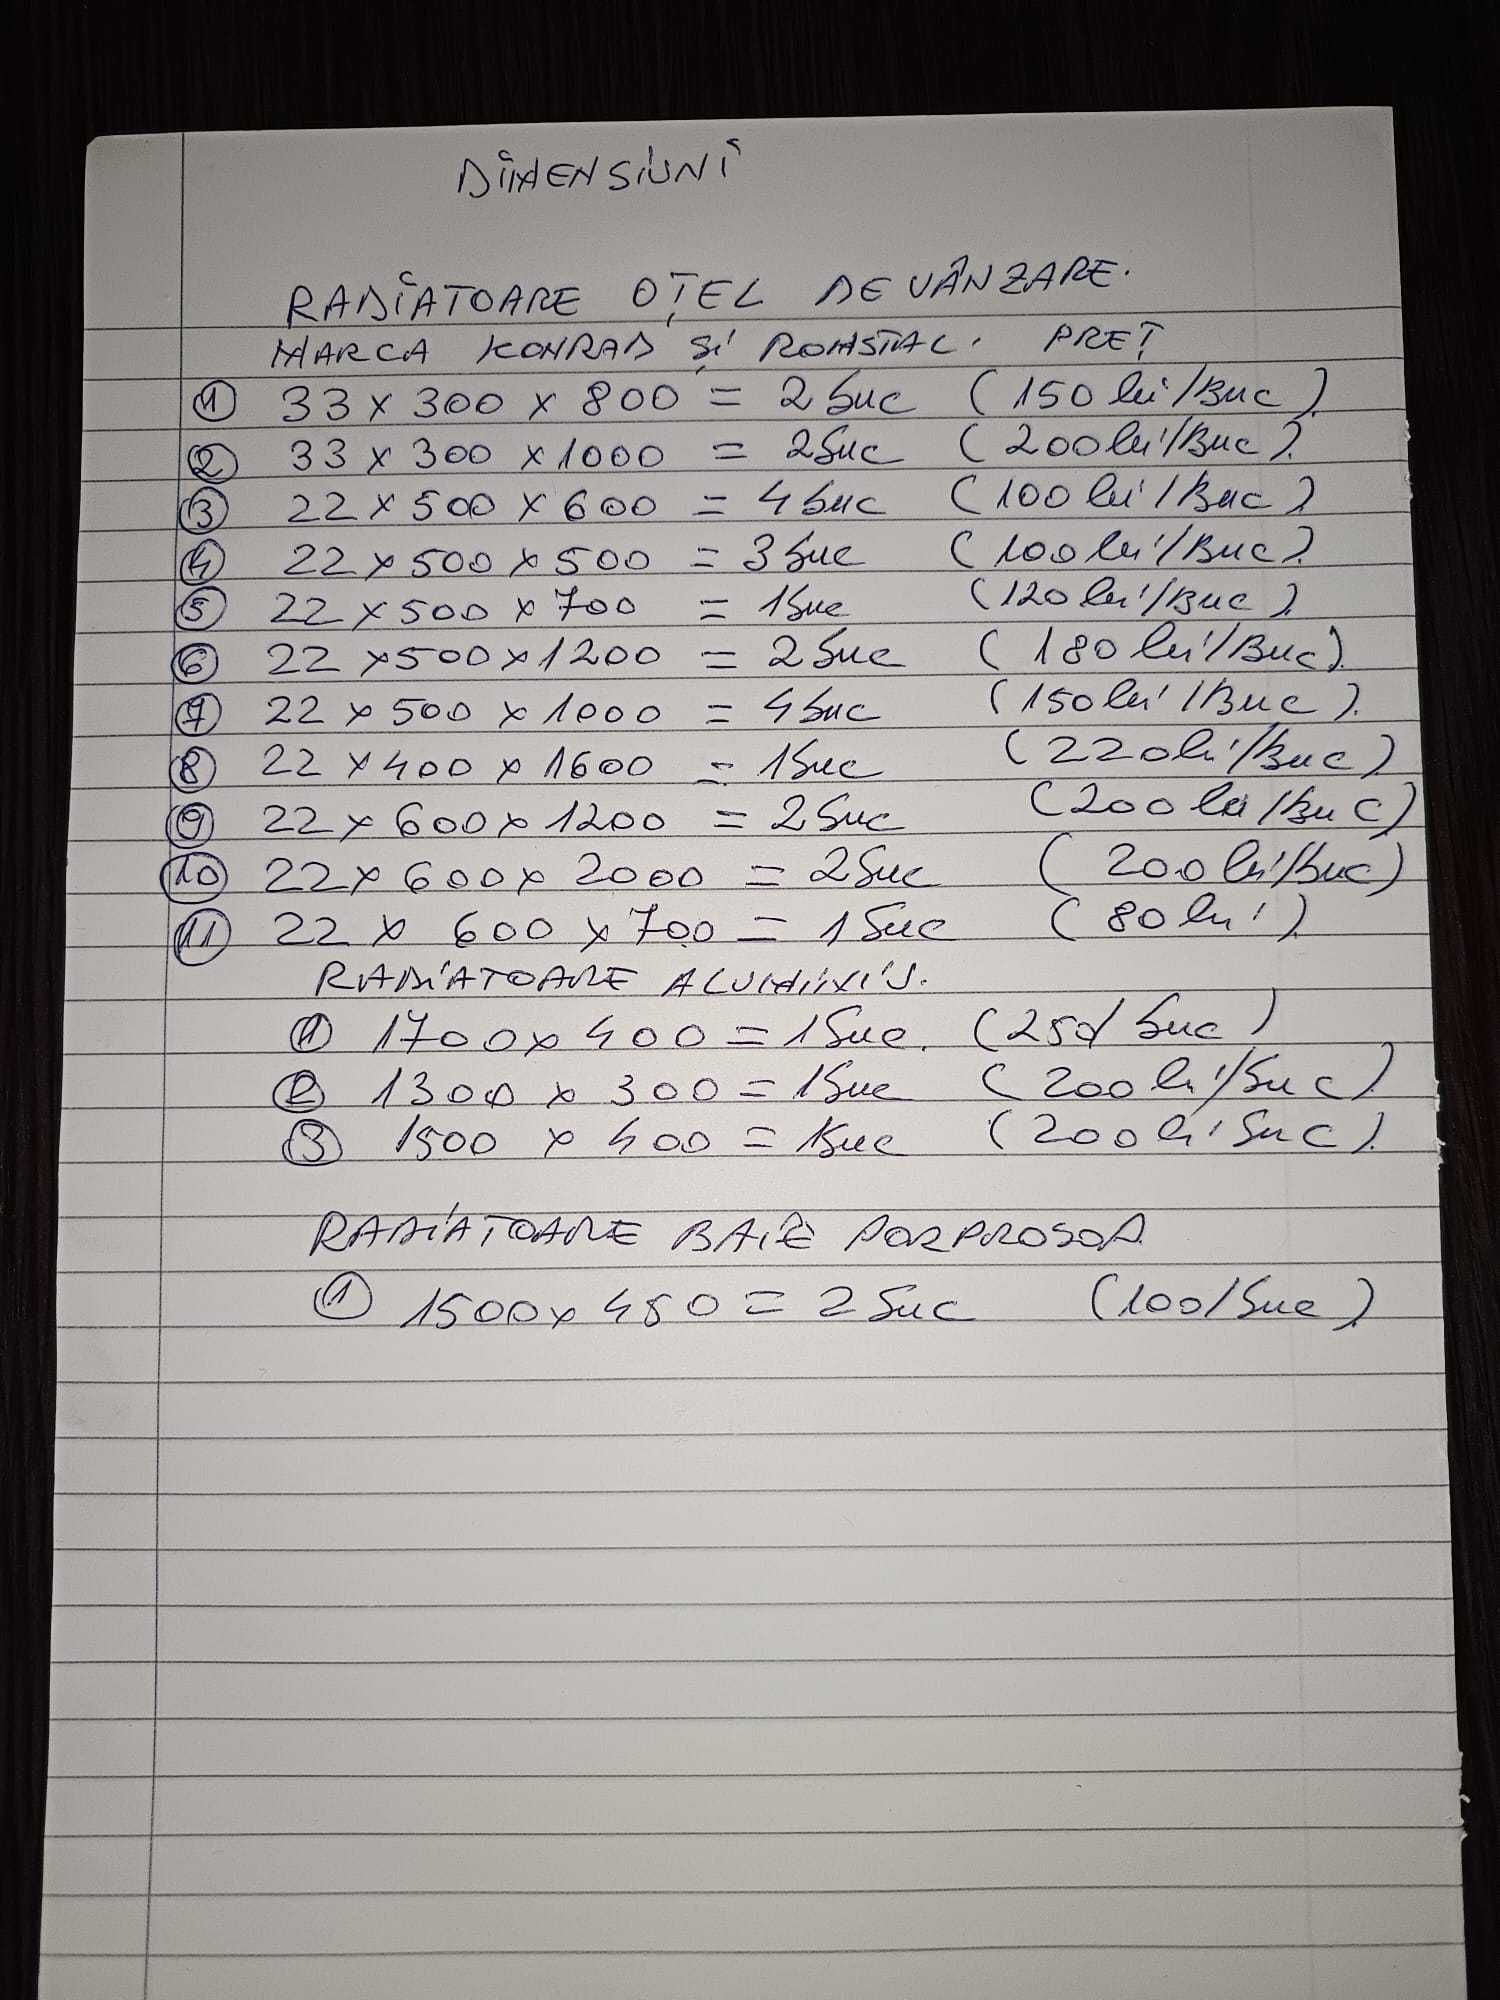 DIMENSIUNI
RADIATOARE OȚEL DE VÂNZARE.
MARCA KONRAD ȘI ROMSTAL. PREȚ
1 33 x 300 x 800 = 2 buc (150 lei/Buc).
2 33 x 300 x 1000 = 2 buc (200 lei/Buc).
3 22 x 500 x 600 = 4 buc (100 lei/Buc)
4 22 x 500 x 500 = 3 buc (100 lei/Buc).
5 22 x 500 x 700 = 1 buc (120 lei/Buc).
6 22 x 500 x 1200 = 2 buc (180 lei/Buc).
7 22 x 500 x 1000 = 4 buc (150 lei/Buc).
8 22 x 400 x 1600 = 1 buc (220 lei/Buc).
9 22 x 600 x 1200 = 2 buc (200 lei/Buc)
10 22 x 600 x 2000 = 2 buc (200 lei/Buc)
11 22 x 600 x 700 = 1 buc (80 lei)
RADIATOARE ALUMINIU.
1 1700 x 400 = 1 buc. (250/buc)
2 1300 x 300 = 1 buc (200 lei/buc).
3 1500 x 400 = 1 buc (200 lei buc).
RADIATOARE BAIE PORPROSOP
1 1500 x 450 = 2 buc (100/buc).